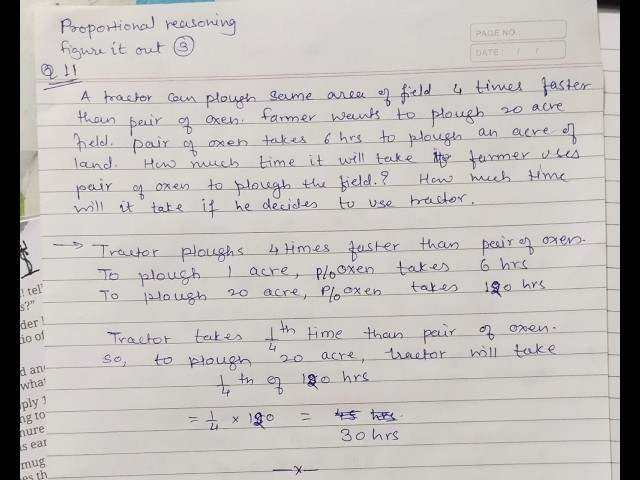 Proportional reasoning
PAGE NO.:
figure it out 3
DATE: / /
Q 11
A tractor can plough same area of field 4 times faster
than pair of oxen. farmer wants to plough 20 acre
field. pair of oxen takes 6 hrs to plough an acre of
land. How much time it will take if farmer uses
pair of oxen to plough the field.? How much time
will it take if he decides to use tractor.
→ Tractor ploughs 4 times faster than pair of oxen.
To plough 1 acre, p/o oxen takes 6 hrs
To plough 20 acre, p/o oxen takes 120 hrs
Tractor takes 1/4 th time than pair of oxen.
so, to plough 20 acre, tractor will take
1/4 th of 120 hrs
= 1/4 × 120 = 45 hrs.
30 hrs
—x—
tel'
s?"
der
io of
d an
what
ply
ng to
nure
s ear
mug
es th